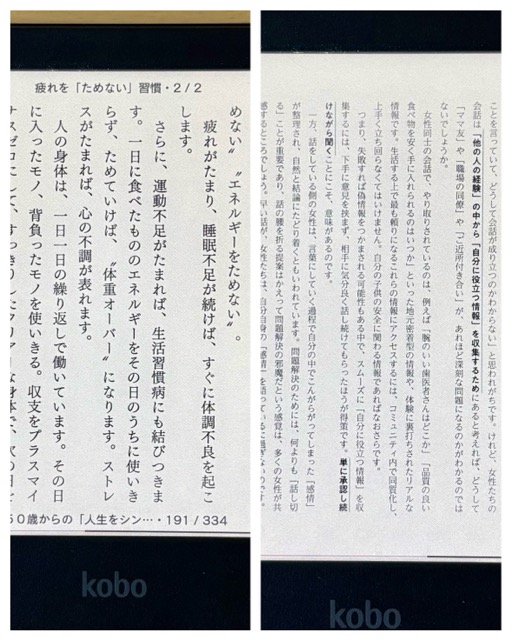 疲れを「ためない」習慣・2/2
めない〟〝エネルギーをためない〟。
疲れがたまり、睡眠不足が続けば、すぐに体調不良を起こ
します。
さらに、運動不足がたまれば、生活習慣病にも結びつきま
す。一日に食べたもののエネルギーをその日のうちに使いき
らず、ためていけば、〝体重オーバー〟になります。ストレ
スがたまれば、心の不調が表れます。
人の身体は、一日一日の繰り返しで働いています。その日
に入ったモノ、背負ったモノを使いきる。収支をプラスマイ
0歳からの「人生をシン…・191/334
kobo
ことを言っていて、どうして会話が成り立つのかわからない」と思われがちです。けれど、女性たちの
会話は「他の人の経験」の中から「自分に役立つ情報」を収集するためにあると考えれば、どうして
「ママ友」や「職場の同僚」や「ご近所付き合い」が、あれほど深刻な問題になるのかがわかるのでは
ないでしょうか。
女性同士の会話で、やり取りされているのは、例えば「腕のいい歯医者さんはどこか」「品質の良い
食べ物を安く手に入れられるのはいつか」といった地元密着型の情報や、体験に裏打ちされたリアルな
情報です。生活する上で最も頼りになるこれらの情報にアクセスするには、コミュニティ内で同質化し、
上手く立ち回らなくてはいけません。自分の子供の安全に関わる情報であればなおさらです。
つまり、失敗すれば偽情報をつかまされる可能性もある中で、スムーズに「自分に役立つ情報」を収
集するには、下手に意見を挟まず、相手に気分良く話し続けてもらったほうが得策です。単に承認し続
けながら聞くことにこそ、意味があるのです。
一方、話をしている側の女性は、言葉にしていく過程で自分の中でこんがらがってしまった「感情」
が整理され、自然と結論にたどり着くともいわれています。問題解決のためには、何よりも「話し切
る」ことが重要であり、話の腰を折る提案はかえって問題解決の邪魔だという感覚は、多くの女性が共
感するところでしょう。早い話が、女性たちは、自分自身の「感情」を語っているに過ぎないのです。
kobo